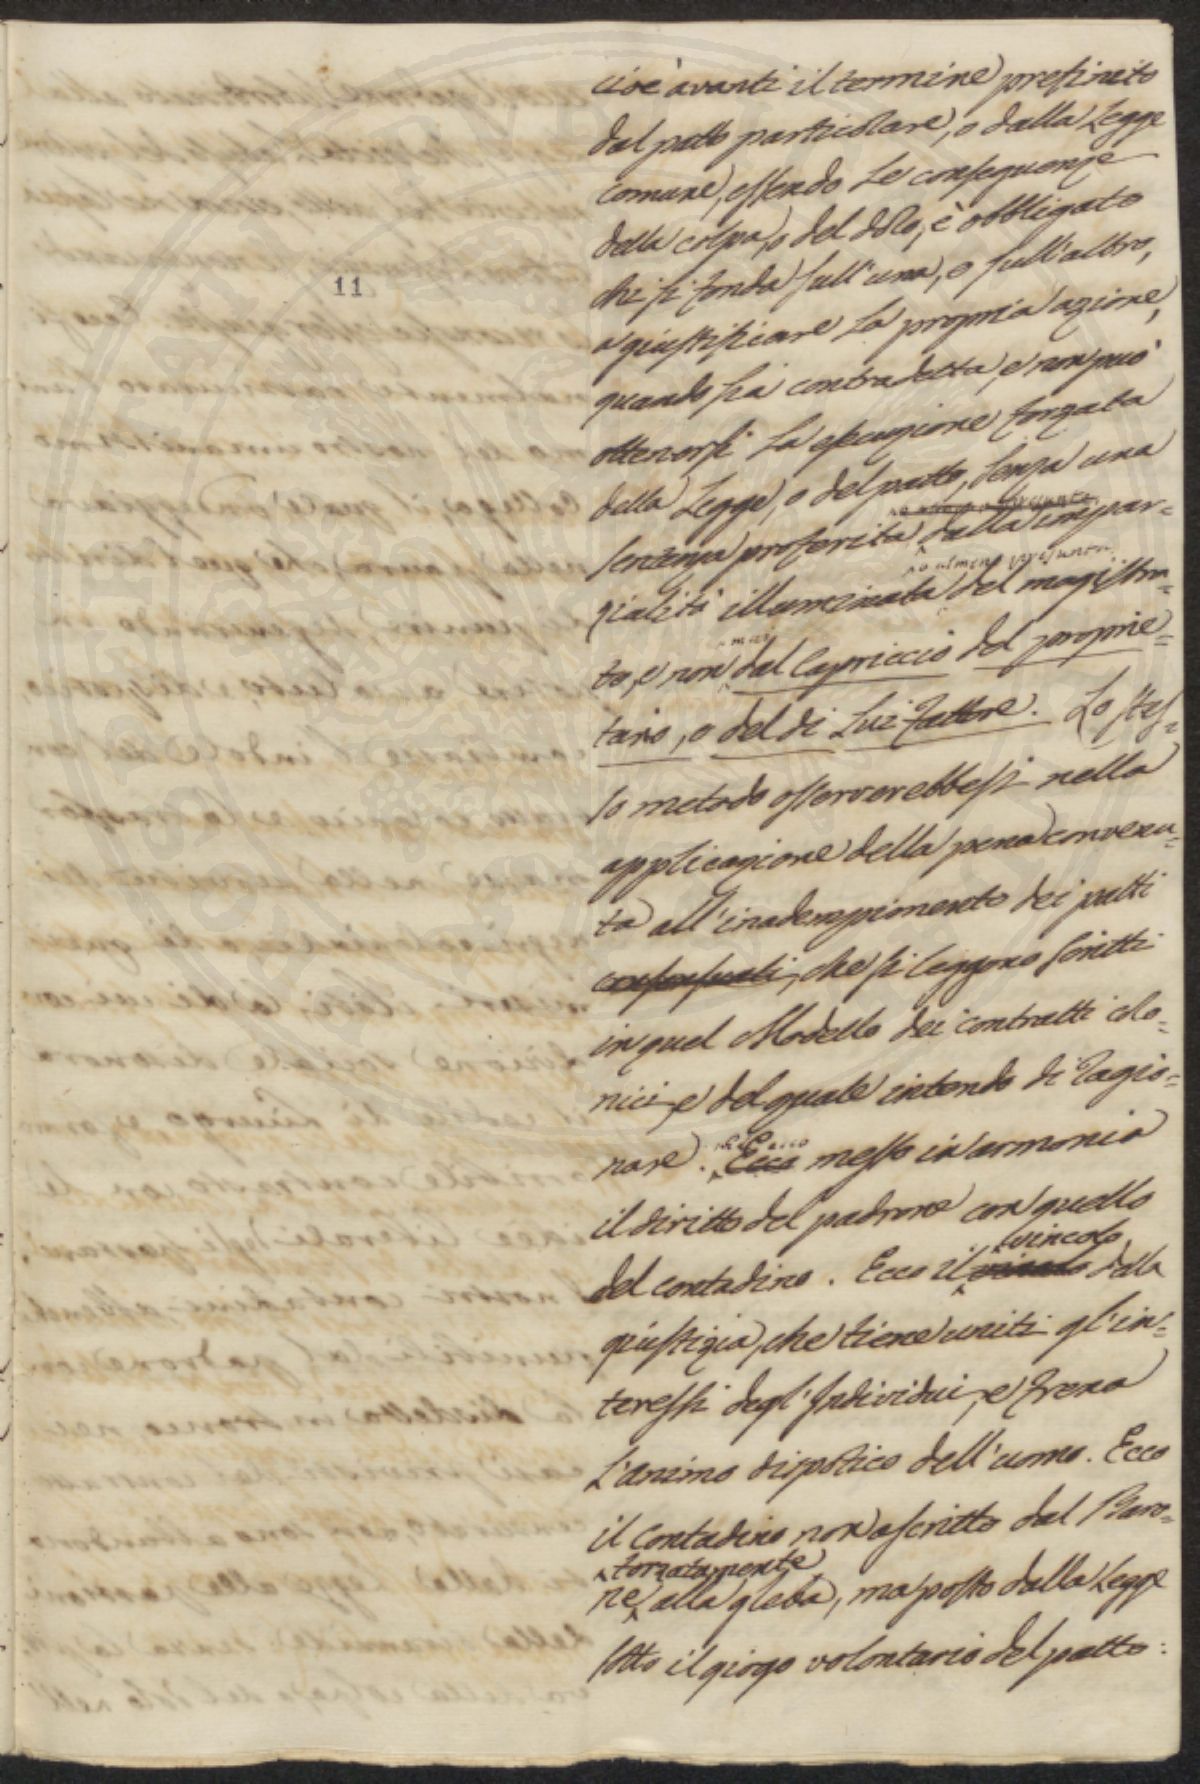 11
cioè avanti il termine prefinito
dal patto particolare, o dalla Legge
comune, essendo le conseguenze
della colpa, o del dolo, è obbligato
chi si fonda sull'una, o sull'altro,
a giustificare la propria azione,
quando sia contradetta, e non può
ottenersi la esecuzione forzata
della Legge, o del patto, senza una
sentenza proferita dalla impar=
o almeno presunta
zialità illuminata del magistra=
mai
to, e non dal Capriccio del proprie=
tario, o del di Lui Fattore. Lo stes=
so metodo osserverebbesi nella
applicazione della pena convenu=
ta all'inadempimento dei patti
consensuali, che si leggono scritti
in quel Modello dei contratti colo=
nici, e del quale intendo di ragio=
nare. Ecco messo in armonia
il diritto del padrone con quello
vincolo
del contadino. Ecco il vincolo della
giustizia, che tiene uniti gl'in=
teressi degl'Individui, e frena
L'animo dispotico dell'uomo. Ecco
il Contadino non ascritto dal Baro=
forzatamente
ne alla gleba, ma posto dalla Legge
sotto il giogo volontario del patto: